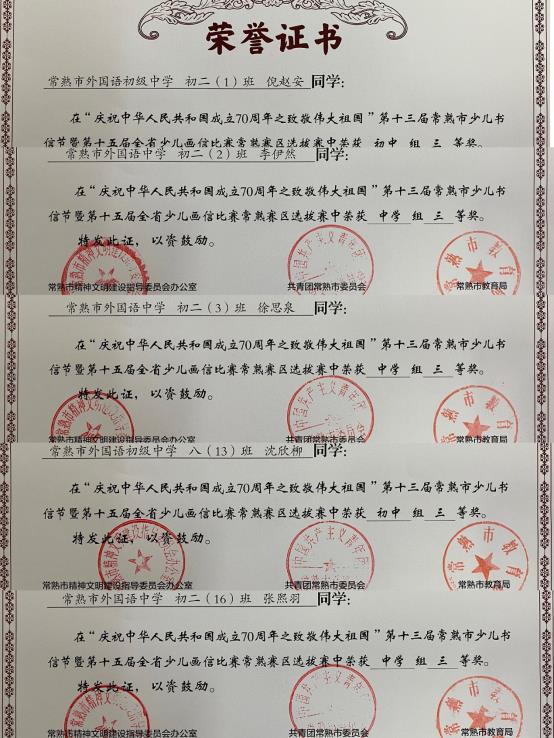 荣誉证书
常熟市外国语初级中学 初二（1）班 倪赵安 同学：
在“庆祝中华人民共和国成立70周年之致敬伟大祖国”第十三届常熟市少儿书
信节暨第十五届全省少儿画信比赛常熟赛区选拔赛中荣获 初中 组 三 等奖。
常熟市外国语中学 初二（2）班 李伊然 同学：
在“庆祝中华人民共和国成立70周年之致敬伟大祖国”第十三届常熟市少儿书
信节暨第十五届全省少儿画信比赛常熟赛区选拔赛中荣获 中学 组 三 等奖。
特发此证，以资鼓励。
常熟市精神文明建设指导委员会办公室 共青团常熟市委员会 常熟市教育局
常熟市外国语中学 初二（3）班 徐思泉 同学：
在“庆祝中华人民共和国成立70周年之致敬伟大祖国”第十三届常熟市少儿书
信节暨第十五届全省少儿画信比赛常熟赛区选拔赛中荣获 中学 组 三 等奖。
特发此证，以资鼓励。
常熟市精神文明建设指导委员会办公室 共青团常熟市委员会 常熟市教育局
常熟市外国语初级中学 八（13）班 沈欣柳 同学：
在“庆祝中华人民共和国成立70周年之致敬伟大祖国”第十三届常熟市少儿书
信节暨第十五届全省少儿画信比赛常熟赛区选拔赛中荣获 初中 组 三 等奖。
特发此证，以资鼓励。
常熟市精神文明建设指导委员会办公室 共青团常熟市委员会 常熟市教育局
常熟市外国语中学 初二（16）班 张熙羽 同学：
在“庆祝中华人民共和国成立70周年之致敬伟大祖国”第十三届常熟市少儿书
信节暨第十五届全省少儿画信比赛常熟赛区选拔赛中荣获 中学 组 三 等奖。
特发此证，以资鼓励。
常熟市精神文明建设指导委员会办公室 共青团常熟市委员会 常熟市教育局